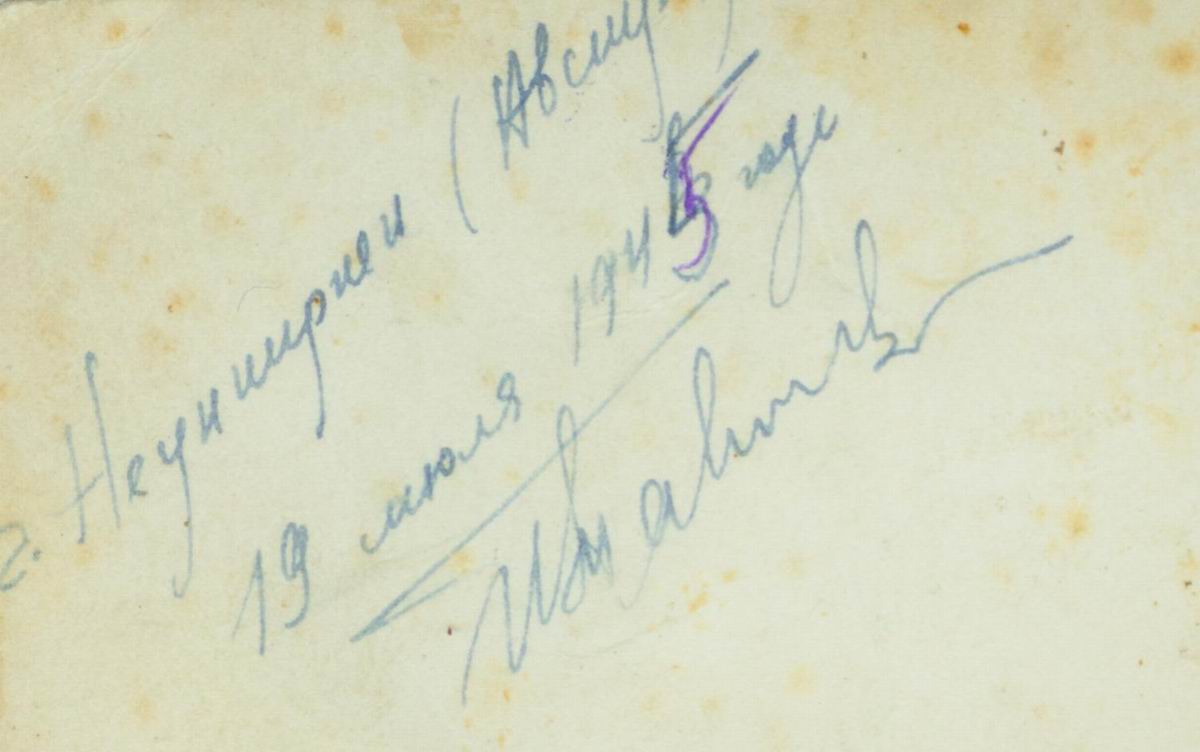 г. Неунширхен (Австр
19 июля 1945 года